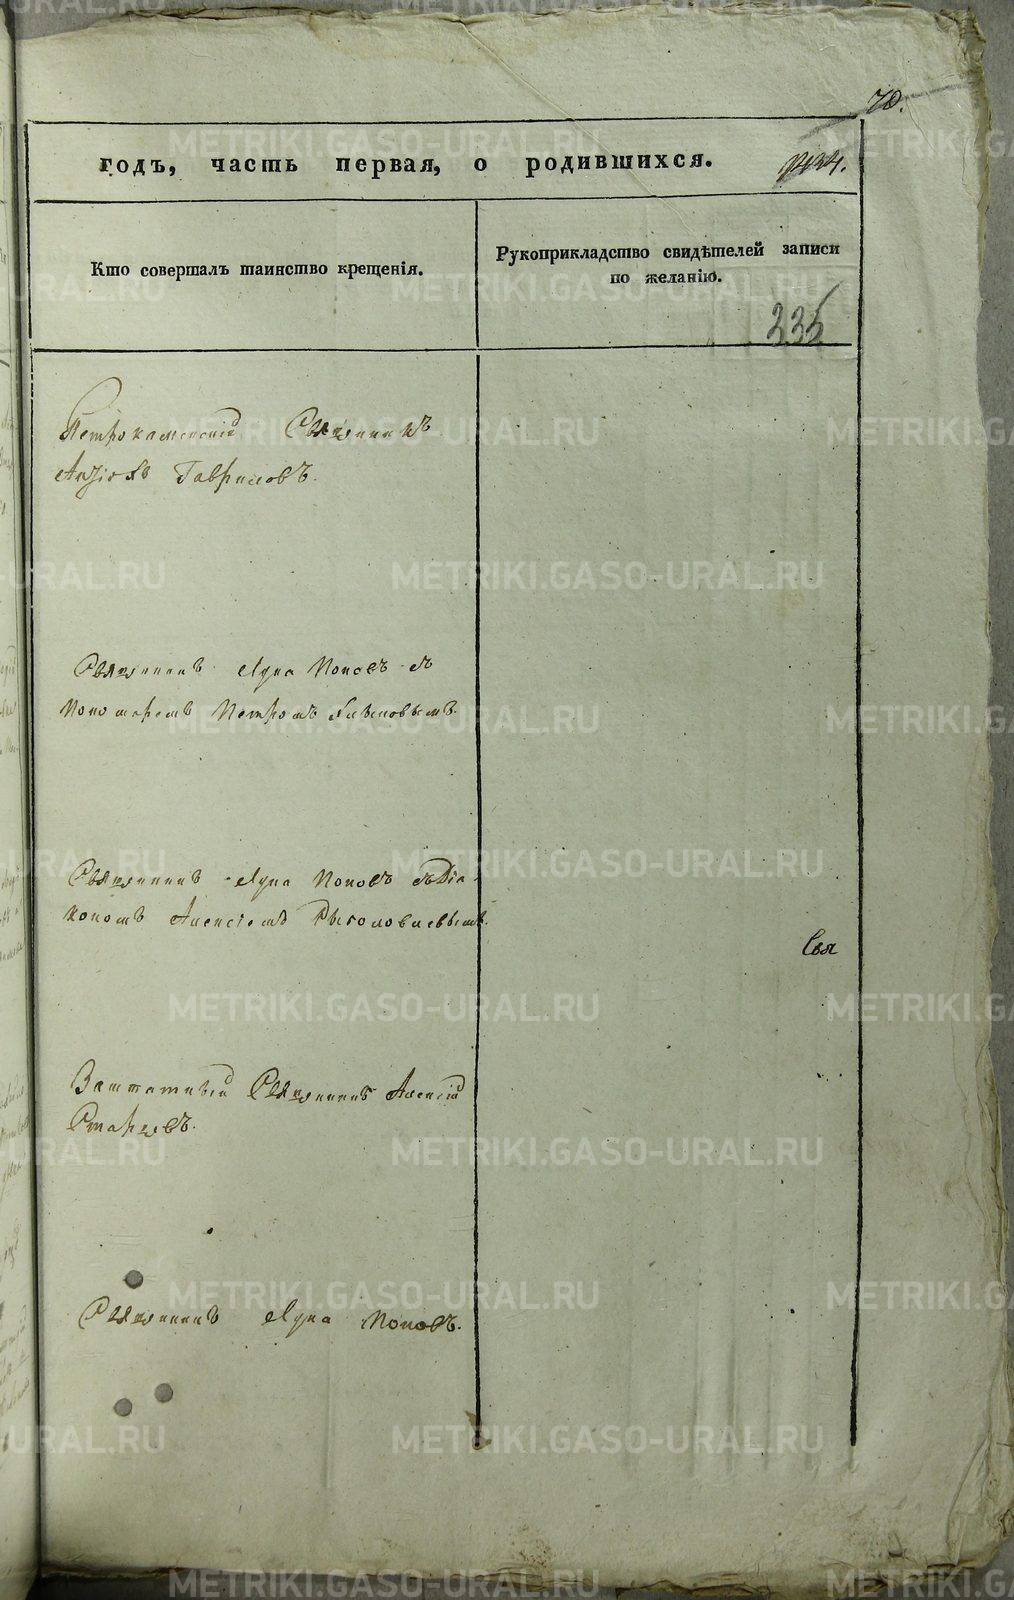 70.
годъ, часть первая, о родившихся.
Кто совершалъ таинство крещенія.
Рукоприкладство свидѣтелей записи
по желанію.
335
Петрокаменскій Священникъ
Гавриловъ.
Священникъ Лука Поповъ съ
Пономаремъ Петромъ
Священникъ Лука Поповъ съ Діа-
кономъ Алексіемъ
Свя
Заштатный Священникъ Алексій
Старцовъ.
Священникъ Лука Поповъ.
METRIKI.GASO-URAL.RU